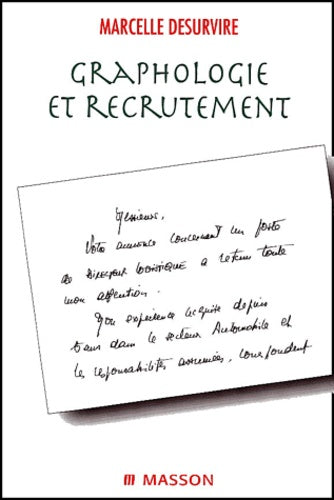 MARCELLE DESURVIRE
GRAPHOLOGIE
ET RECRUTEMENT
Messieurs,
Votre annonce concernant un poste
de DIRECTEUR LOGISTIQUE a retenu toute
mon attention.
Mon expérience acquise depuis
ans dans le secteur Automobile et
les responsabilités assumées, correspondent
m MASSON